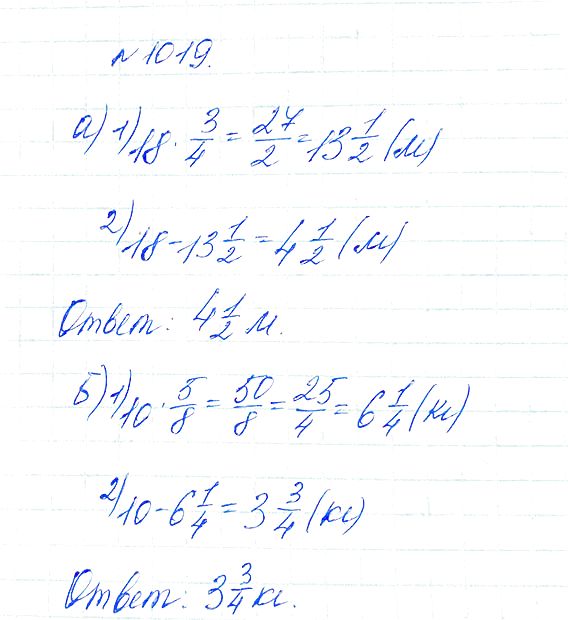 № 1019.
а) 1) 18 · 3/4 = 27/2 = 13 1/2 (м)
2) 18 - 13 1/2 = 4 1/2 (м)
Ответ: 4 1/2 м.
б) 1) 10 · 5/8 = 50/8 = 25/4 = 6 1/4 (кг)
2) 10 - 6 1/4 = 3 3/4 (кг)
Ответ: 3 3/4 кг.